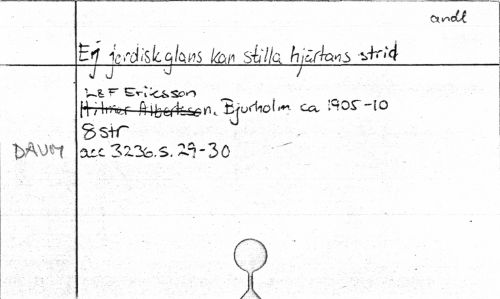 andl
Ej jordisk glans kan stilla hjärtans strid
Leif Eriksson
Hilmer Albertsson, Bjurholm ca 1905-10
8 str
DAUM acc 3236.s. 29-30